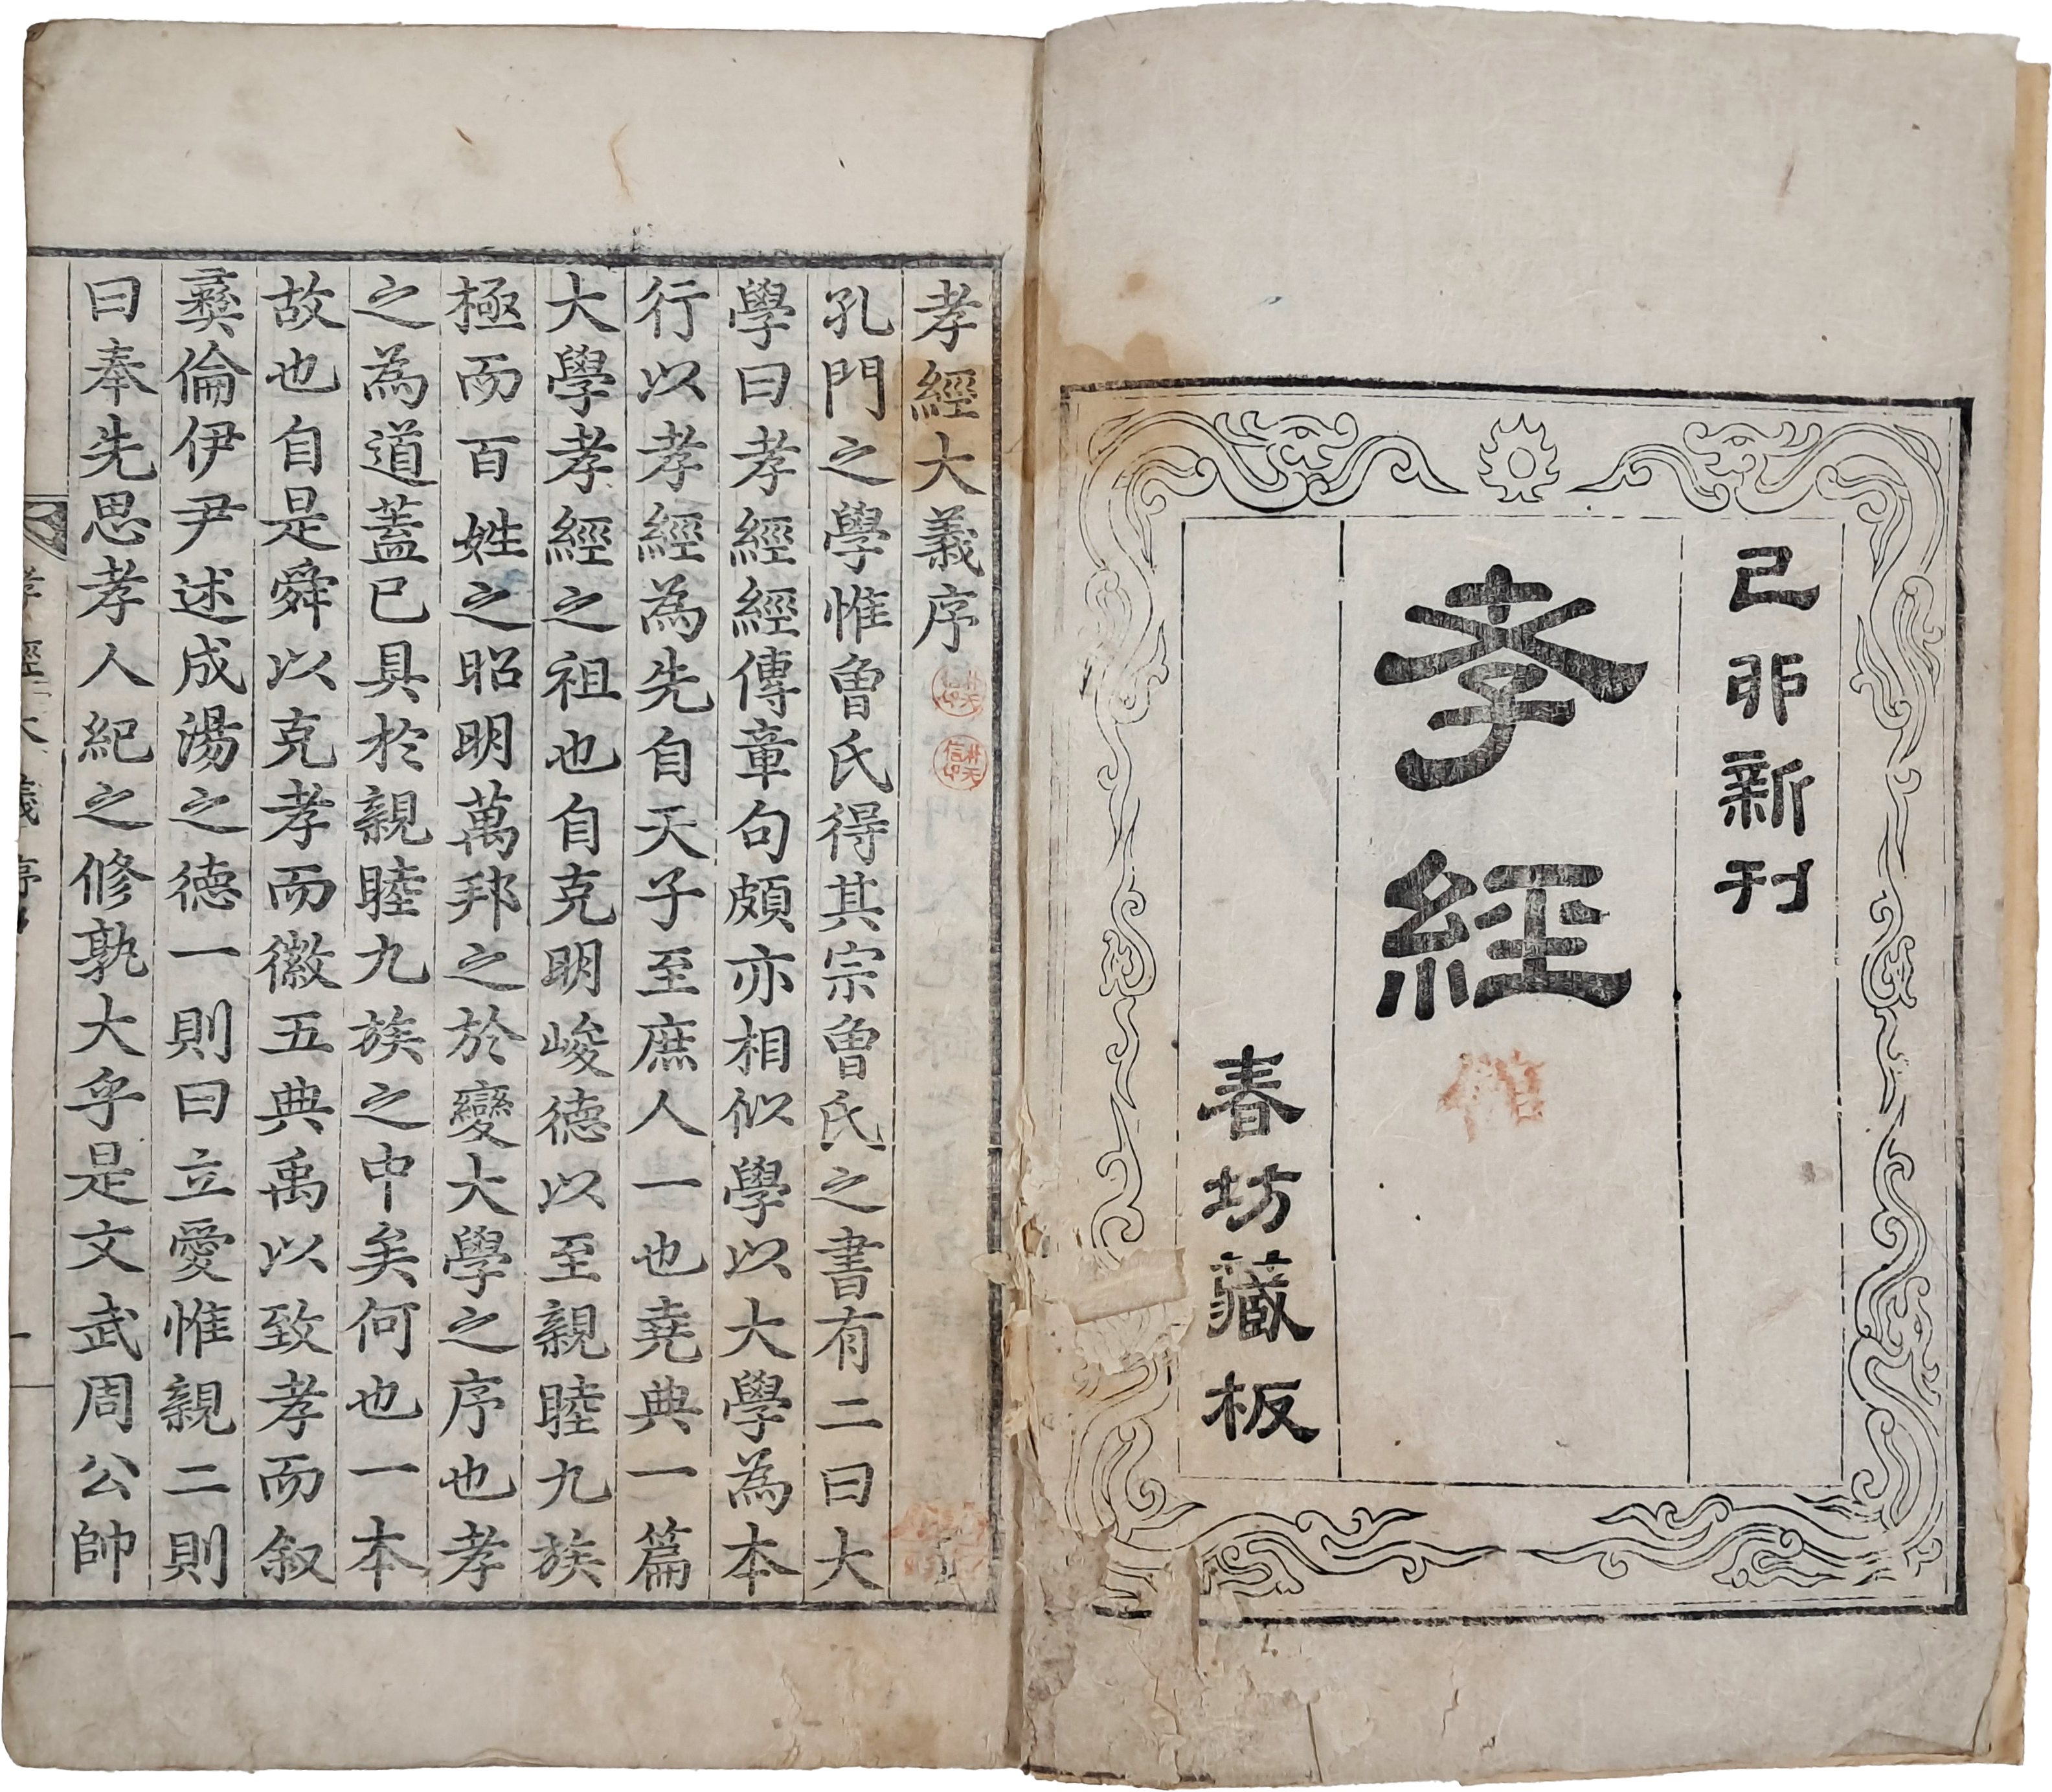 己卯新刊
孝經
春坊藏板
孝經大義序
孔門之學惟曾氏得其宗曾氏之書有二曰大
學曰孝經經傳章句頗亦相似學以大學為本
行以孝經為先自天子至庶人一也堯典一篇
大學孝經之祖也自克明峻德以至親睦九族
極而百姓之昭明萬邦之於變大學之序也孝
之為道蓋已具於親睦九族之中矣何也一本
故也自是舜以克孝而徽五典禹以致孝而叙
彝倫伊尹述成湯之德一則曰立愛惟親二則
曰奉先思孝人紀之修孰大乎是文武周公帥
孝經大義序
一